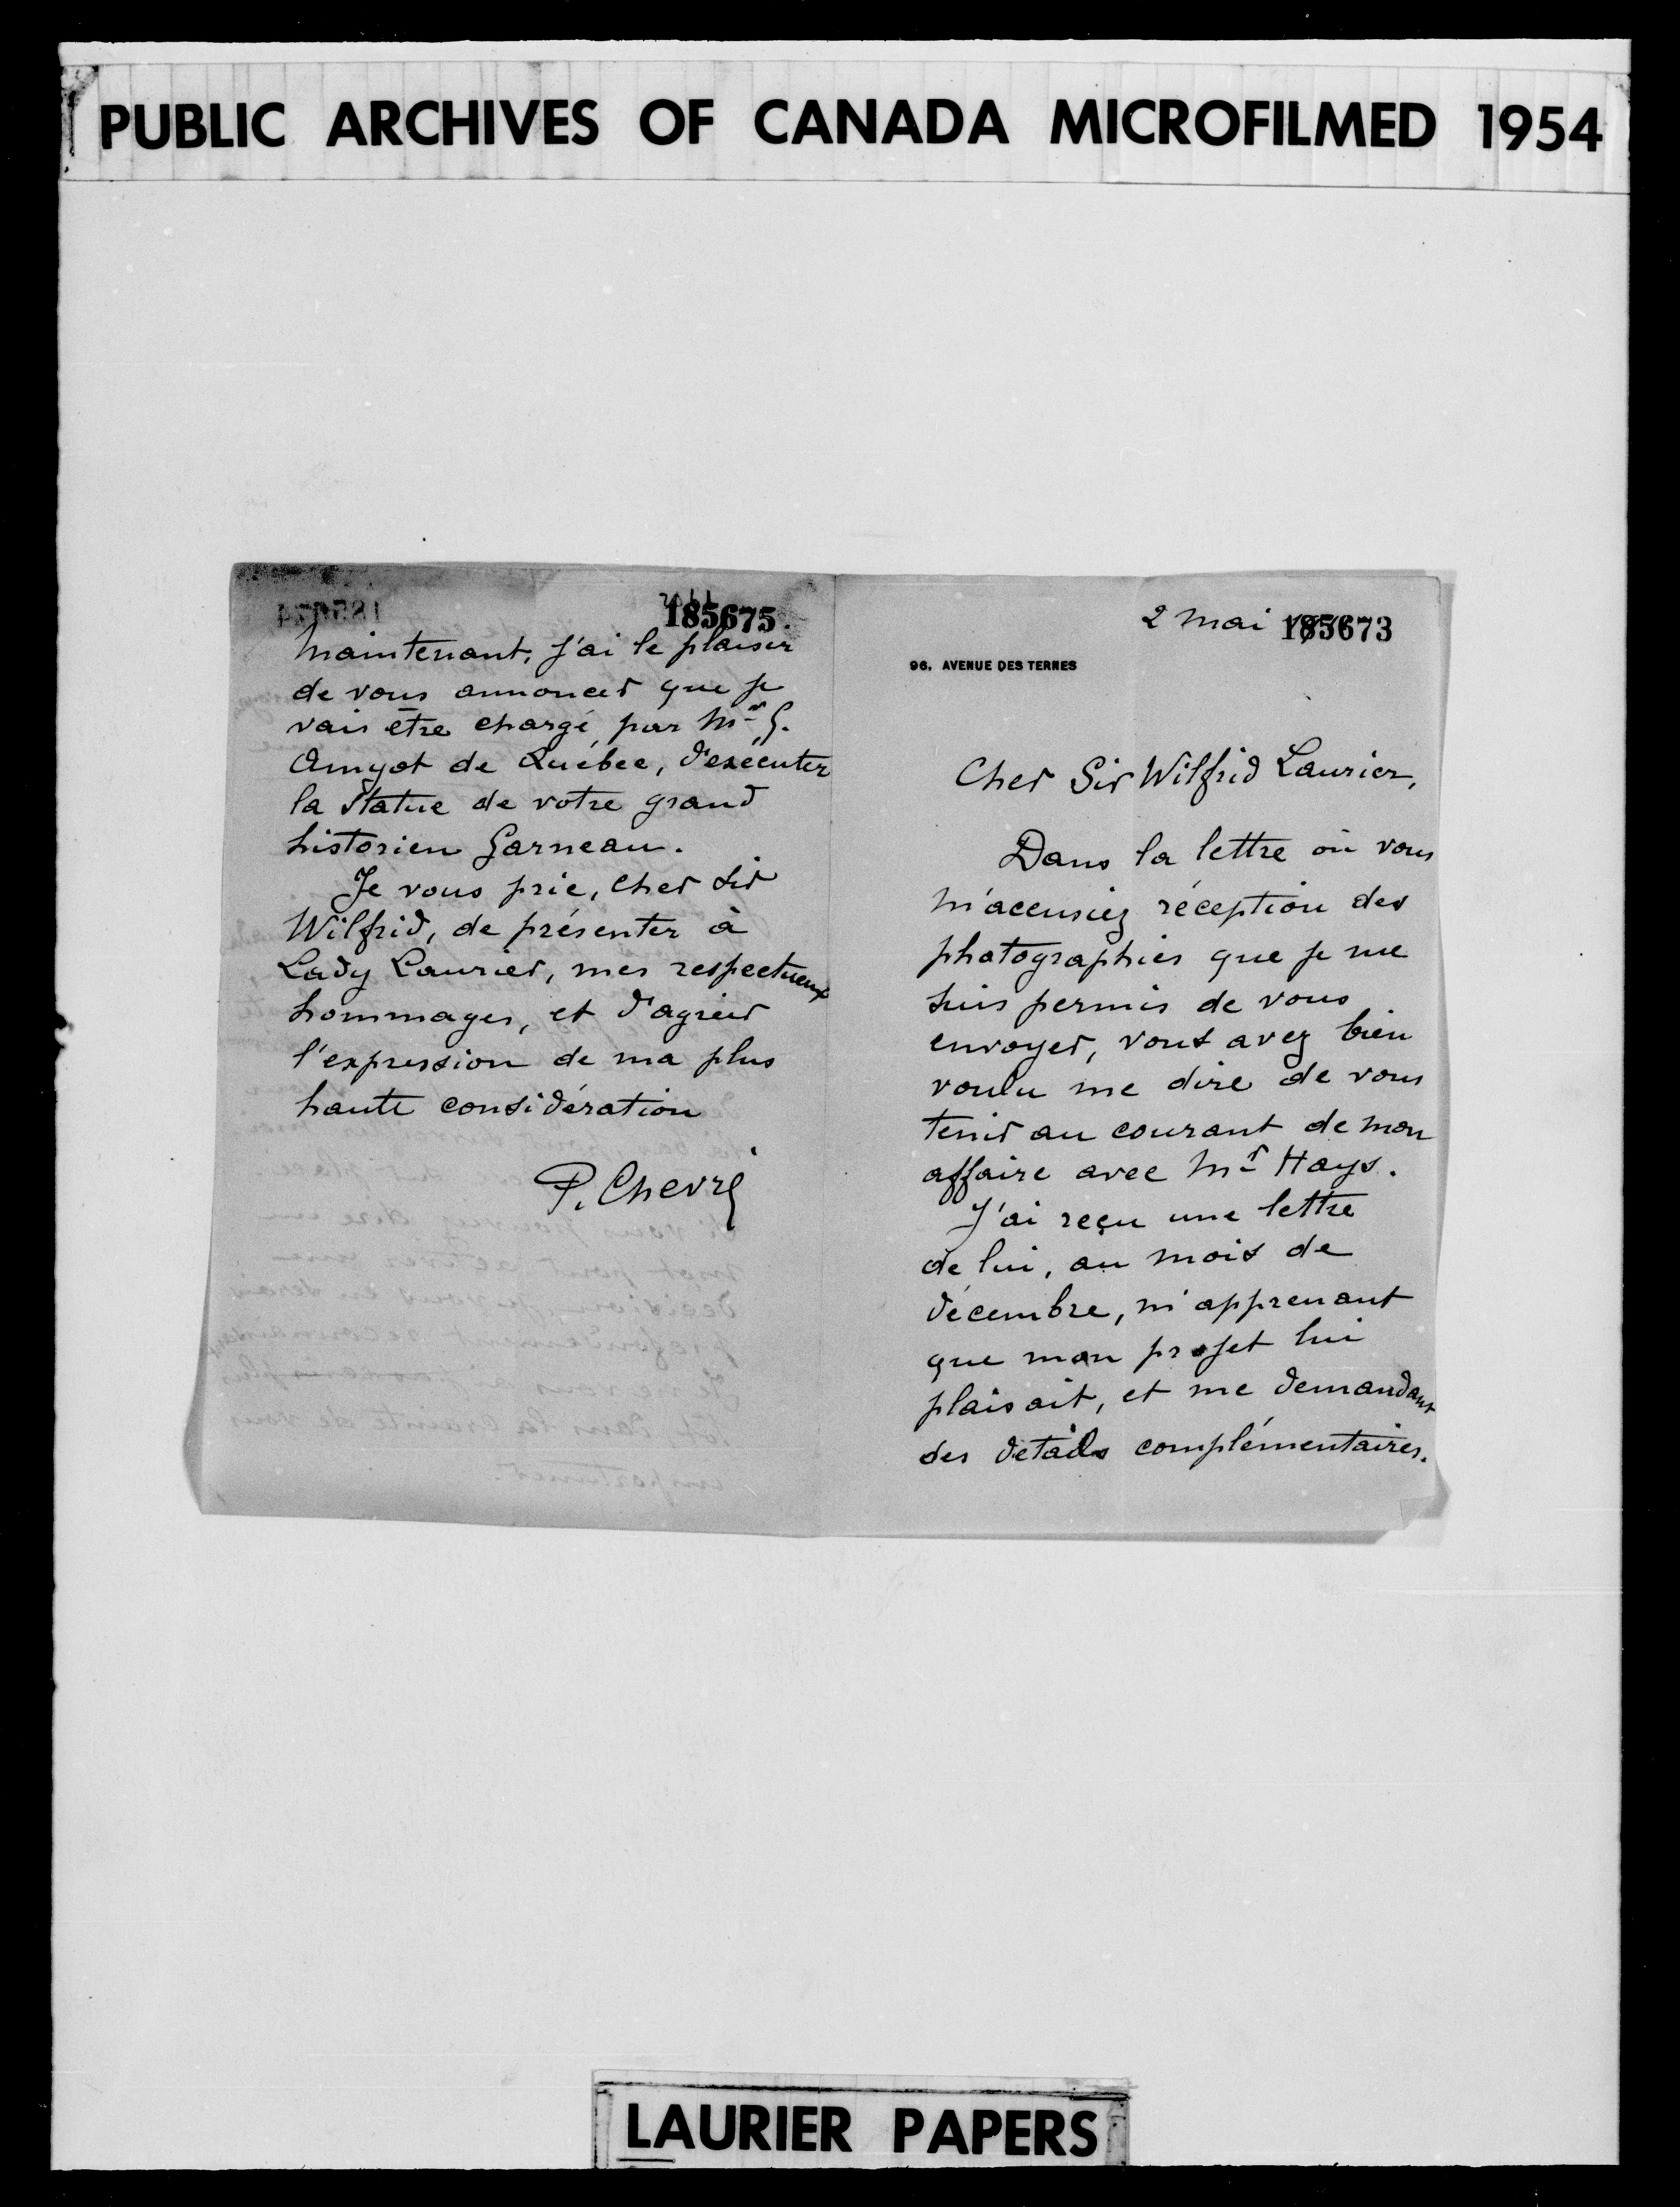 PUBLIC ARCHIVES OF CANADA MICROFILMED 1954
185675
Maintenant, j'ai le plaisir
de vous annoncer que je
vais être chargé, par Mr G.
Amyot de Québec, d'exécuter
la statue de votre grand
historien Garneau.
Je vous prie, cher Sir
Wilfrid, de présenter à
Lady Laurier, mes respectueux
hommages, et d'agréer
l'expression de ma plus
haute considération
P. Chevré
2 Mai 185673
96, AVENUE DES TERNES
Cher Sir Wilfrid Laurier,
Dans la lettre où vous
m'accusiez réception des
photographies que je me
suis permis de vous
envoyer, vous avez bien
voulu me dire de vous
tenir au courant de mon
affaire avec Mr Hays.
J'ai reçu une lettre
de lui, au mois de
décembre, m'apprenant
que mon projet lui
plaisait, et me demandant
des détails complémentaires.
LAURIER PAPERS